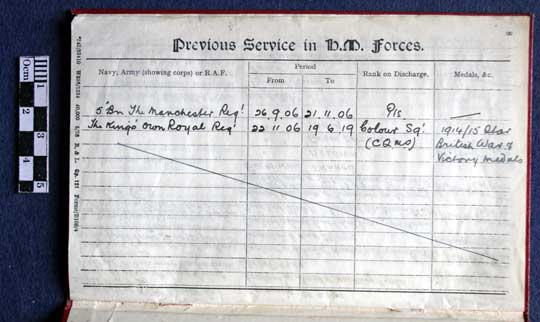 Previous Service in H.M. Forces.
Navy, Army (showing corps) or R.A.F.
Period
From
To
Rank on Discharge.
Medals, &c.
5 Bn The Manchester Regt 26.9.06 21.11.06 —
The King's Own Royal Regt 22 11 06 19 6 19 Colour Sgt 1914/15 Star
(CQMS) British War &
Victory medals
0cm 1
2
3
4
5